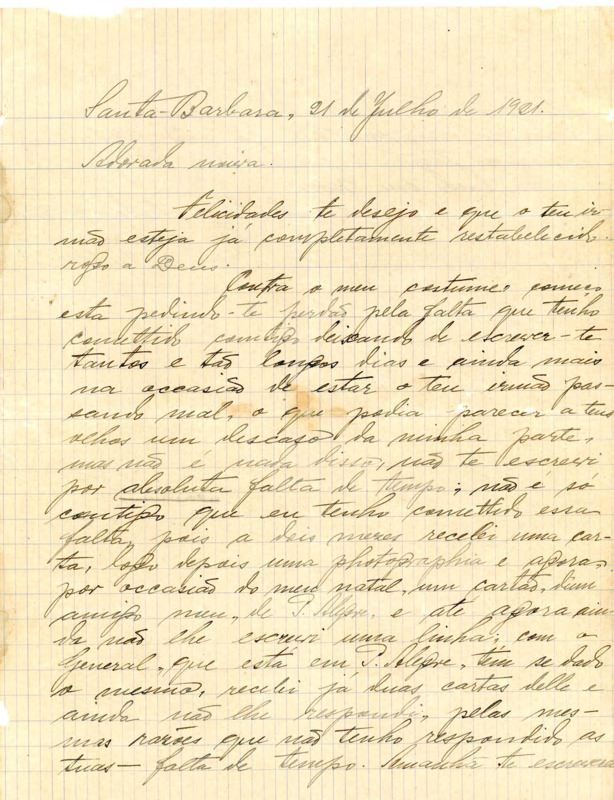 Santa-Barbara, 21 de Julho de 1921.
Adorada noiva.
Felicidades te desejo e que o teu ir-
mão esteja já completamente restabelecido
rogo a Deus.
Contra o meu costume, começo
esta pedindo-te perdão pela falta que tenho
comettido comtigo deixando de escrever-te
tantos e tão longos dias e ainda mais
na occasião de estar o teu irmão pas-
sando mal, o que podia parecer a teus
olhos um descaso da minha parte,
mas não é nada disso, não te escrevi
por absoluta falta de tempo; não é só
comtigo que eu tenho comettido essa
falta, pois a dois mezes recebi uma car-
ta, logo depois uma photographia e agora,
por occasião do meu natal, um cartão, dum
amigo meu, de P. Alegre, e até agora ain-
da não lhe escrevi uma linha; com o
General, que está em P. Alegre, tem se dado
o mesmo, recebi já duas cartas delle e
ainda não lhe respondi, pelas mes-
mas razões que não tenho respondido as
tuas - falta de tempo. Amanhã te escreverei